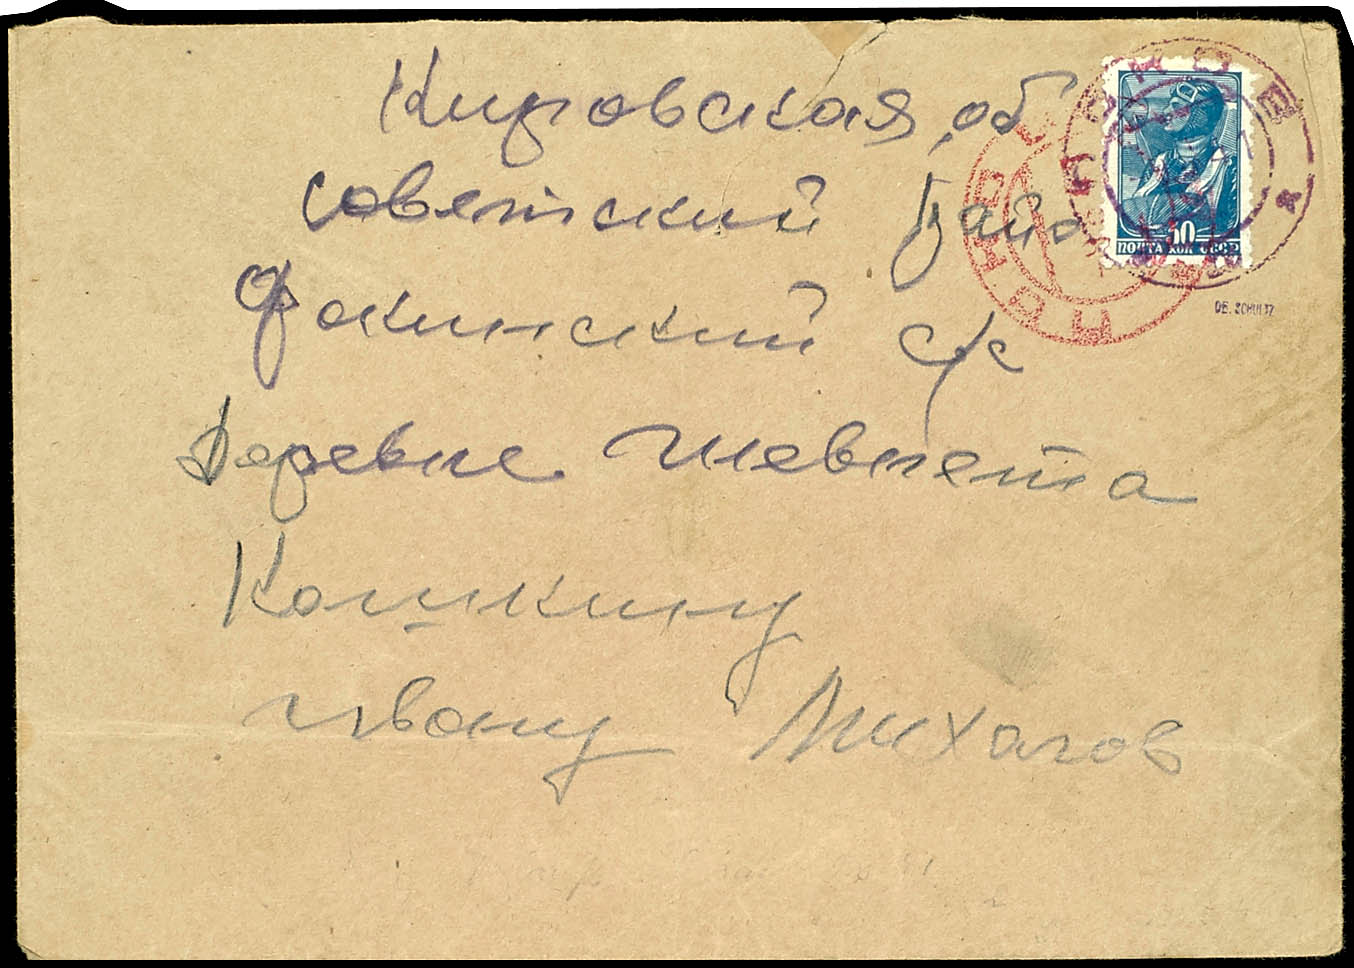 Кировская, об
Советский Райо
Фокинский с/с
Деревне Шевнета
Кошкину
Ивану Михалов
10
ПОЧТА КОП СССР